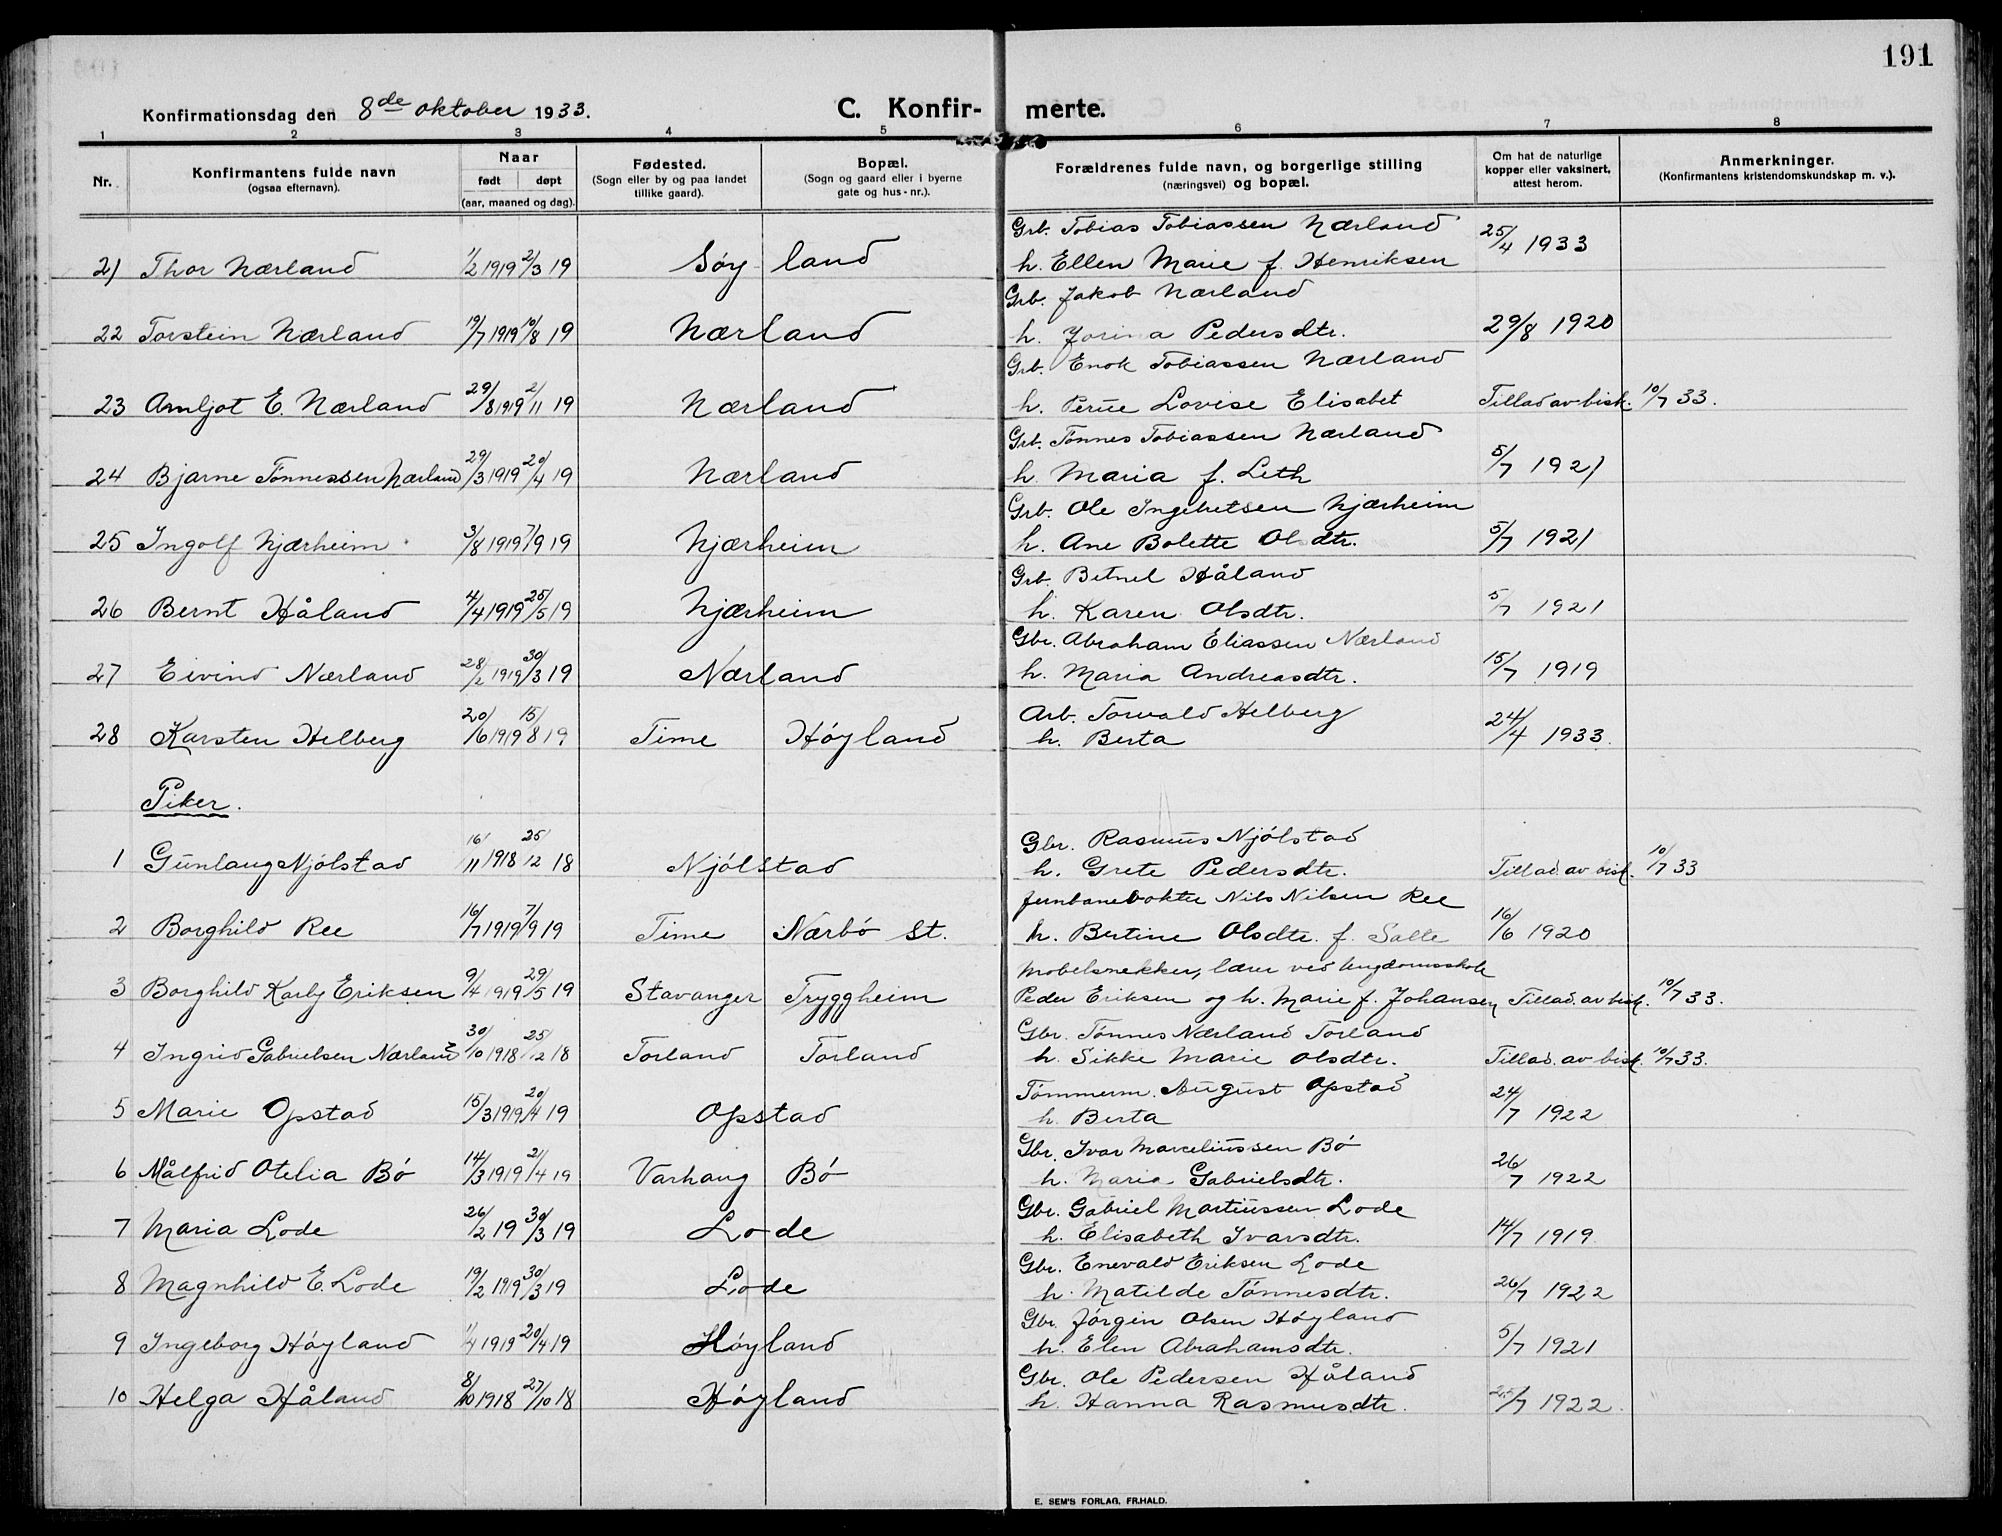 191
Konfirmationsdag den 8de oktober 1933. C. Konfir- merte.
1 2 3 4 5 6 7 8
Nr. Konfirmantens fulde navn (ogsaa efternavn). Naar født døpt (aar, maaned og dag). Fødested. (Sogn eller by og paa landet tillike gaard). Bopæl. (Sogn og gaard eller i byerne gate og hus-nr.). Forældrenes fulde navn, og borgerlige stilling (næringsvei) og bopæl. Om hat de naturlige kopper eller vaksinert, attest herom. Anmerkninger. (Konfirmantens kristendomskundskap m. v.).
Grb. Tobias Tobiassen Nærland
21 Thor Nærland 1/2 1919 2/3 19 Søyland h. Ellen Marie f. Henriksen 25/4 1933
Grb. Jakob Nærland
22 Torstein Nærland 19/7 1919 10/8 19 Nærland h. Jorina Pedersdtr. 29/8 1920
Grb. Enok Tobiassen Nærland
23 Arnljot E. Nærland 29/8 1919 2/11 19 Nærland h. Lovise Elisabet Tillad av bisk. 10/7 33.
Grb. Tønnes Tobiassen Nærland
24 Bjarne Tønnessen Nærland 29/3 1919 20/4 19 Nærland h. Maria f. Leth 5/7 1921
Grb. Ole Ingebretsen Njærheim
25 Ingolf Njærheim 3/8 1919 7/9 19 Njærheim h. Ane Bolette Olsdtr. 5/7 1921
Grb. Betuel Håland
26 Bernt Håland 4/4 1919 25/5 19 Njærheim h. Karen Olsdtr. 5/7 1921
Gbr. Abraham Eliassen Nærland
27 Eivind Nærland 28/2 1919 30/3 19 Nærland h. Maria Andreasdtr. 15/7 1919
Arb. Torvald Helberg
28 Karsten Helberg 20/6 1919 15/8 19 Time Høyland h. Berta 24/4 1933.
Piker.
Gbr. Rasmus Njølstad
1 Gunlaug Njølstad 16/11 1918 25/12 18 Njølstad h. Grete Pedersdtr. Tillad. av bisk. 10/7 33
Jernbanevokter Nils Nilsen Ree
2 Borghild Ree 16/7 1919 7/9 19 Time Nærbø st. h. Bertine Olsdtr. f. Salte 16/6 1920
Møbelsnekker, lærer ved Ungdomsskole
3 Borghild Karly Eriksen 9/4 1919 29/5 19 Stavanger Tryggheim Peder Eriksen og h. Marie f. Johansen Tillad. av bisk. 10/7 33.
Gbr. Tønnes Nærland Torland
4 Ingrid Gabrielsen Nærland 30/10 1918 25/12 18 Torland Torland h. Sikke Marie Olsdtr. Tillad. av bisk. 10/7 33.
Tømmerm. August Opstad
5 Marie Opstad 15/3 1919 20/4 19 Opstad h. Berta 24/7 1922
Gbr. Ivar Marceliussen Bø
6 Målfrid Otelia Bø 14/3 1919 21/4 19 Varhaug Bø h. Maria Gabrielsdtr. 26/7 1922
Gbr. Gabriel Martiussen Lode
7 Maria Lode 26/2 19 30/3 19 Lode h. Elisabeth Ivarsdtr. 14/7 1919
Gbr. Enevald Eriksen Lode
8 Magnhild E. Lode 19/2 1919 30/3 19 Lode h. Matilde Tønnesdtr. 26/7 1922
Gbr. Jørgin Olsen Høyland
9 Ingeborg Høyland 1/4 1919 20/4 19 Høyland h. Elen Abrahamsdtr. 5/7 1921
Gbr. Ole Pedersen Håland
10 Helga Håland 8/10 1918 27/10 18 Høyland h. Hanna Rasmusdtr. 1922.
E. SEM'S FORLAG, FR.HALD.